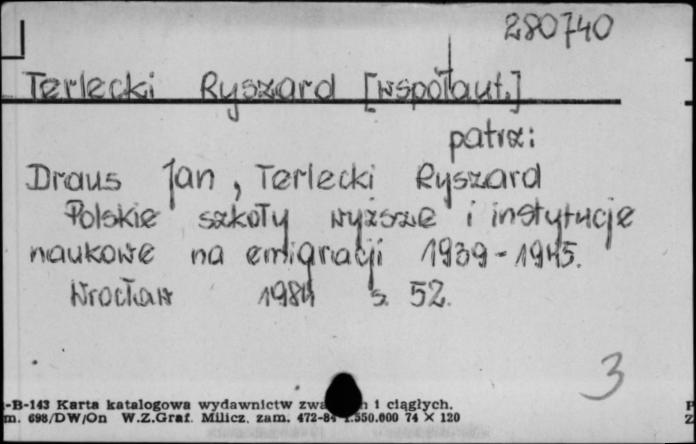 280740
Terlecki Ryszard [współaut.]
patrz:
Draus Jan, Terlecki Ryszard
Polskie szkoły wyższe i instytucje
naukowe na emigracji 1939-1945.
Wrocław 1984 s. 52.
3
-B-143 Karta katalogowa wydawnictw zwa n i ciągłych.
m. 698/DW/On W.Z.Graf. Milicz. zam. 472-84 1.550.000 74 × 120